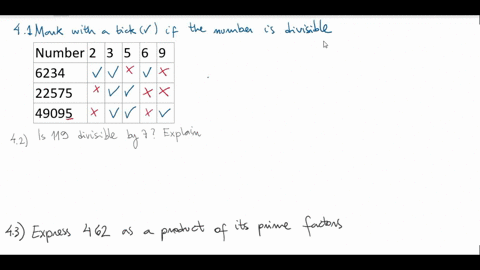 4.1 Mark with a tick (✓) if the number is divisible
Number 2 3 5 6 9
6234 ✓ ✓ × ✓ ×
22575 × ✓ ✓ × ×
49095 × ✓ ✓ × ✓
4.2) Is 119 divisible by 7? Explain
4.3) Express 462 as a product of its prime factors